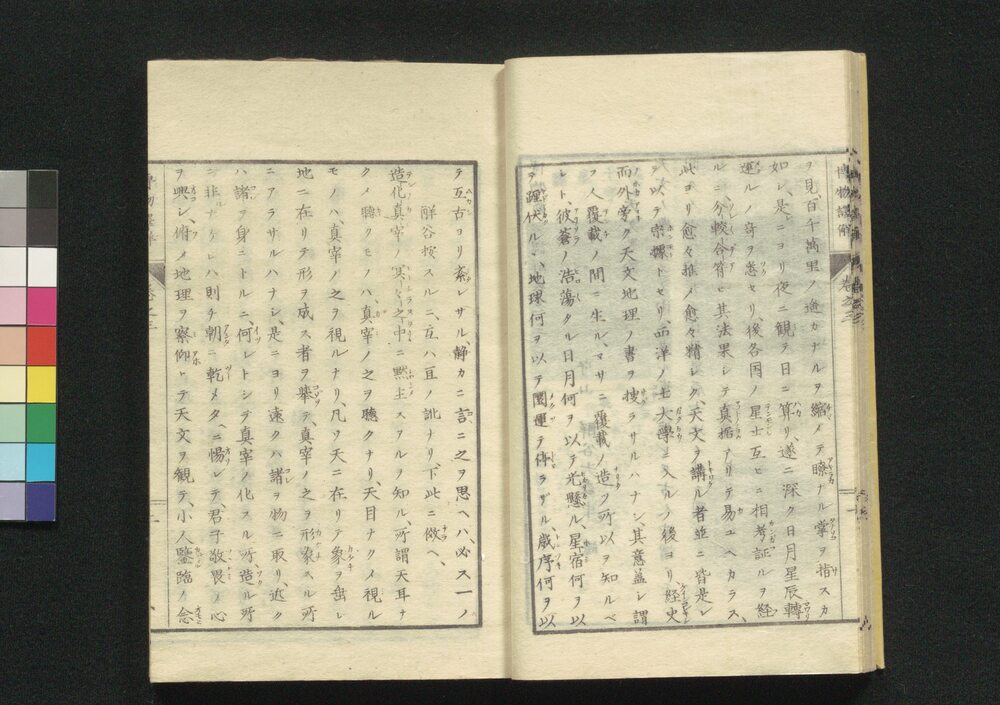 博物
巻之三
ヲ見百千萬里ノ遙カナルヲ縮メテ瞭ナル掌ヲ指スカ
如シ、是ニヨリ夜ニ観テ日ニ算リ、遂ニ深ク日月星辰轉
運ルノ奇ヲ悉セリ、後各国ノ星士互ヒニ相考証ルヲ経
ルニ分較合符ヒ其法果シテ真拠アリテ易ユヘカラス、
此ヨリ愈々推メ愈々精シク、天文ヲ講ル者並ニ皆是レ
ヲ以テ宗トセリ、西洋ノ士大学ニ入ルノ後ヨリ経史
而外ク天文地理ノ書ヲ捜ラサルハナシ、其意蓋シ謂
フ人覆載ノ間ニ生ル、マサニ覆載ノ造ク所以ヲ知ルベ
シト、彼蒼ノ浩蕩タル日月何ヲ以テ光懸ル、星宿何ヲ以
テ躔伏ル、地球何ヲ以テ圜運テ停ラザル、歳序何ヲ以
テ互古ヨリ紊レサル、静カニ言ニ之ヲ思ヘハ、必ス一ノ
解谷按スルニ、互ハ亘ノ訛ナリ、下此ニ倣ヘ、
造化真宰ノ冥々之中ニ黙主スアルヲ知ル、所謂天耳ナ
クメ聴クモノハ、真宰ノ之ヲ聴クナリ、天目ナクメ視ル
モノハ、真宰ノ之ヲ視ルナリ、凡ヲ天ニ在リテ象ヲ垂レ
地ニ在リテ形ヲ成ス者ヲ挙テ、真宰ノ之ヲ形象スル所
ニアラサルハナシ、是ニヨリ遠クハ諸ヲ物ニ取リ、近ク
ハ諸ヲ身ニトルニ、何レトシテ真宰ノ化スル所、造ル所
ニ非ナケレハ則チ朝ニ乾メタベニ惕レテ、君子敬畏ノ心
ヲ興シ、俯ノ地理ヲ察仰トテ天文ヲ観テ、小人鑒臨ノ念